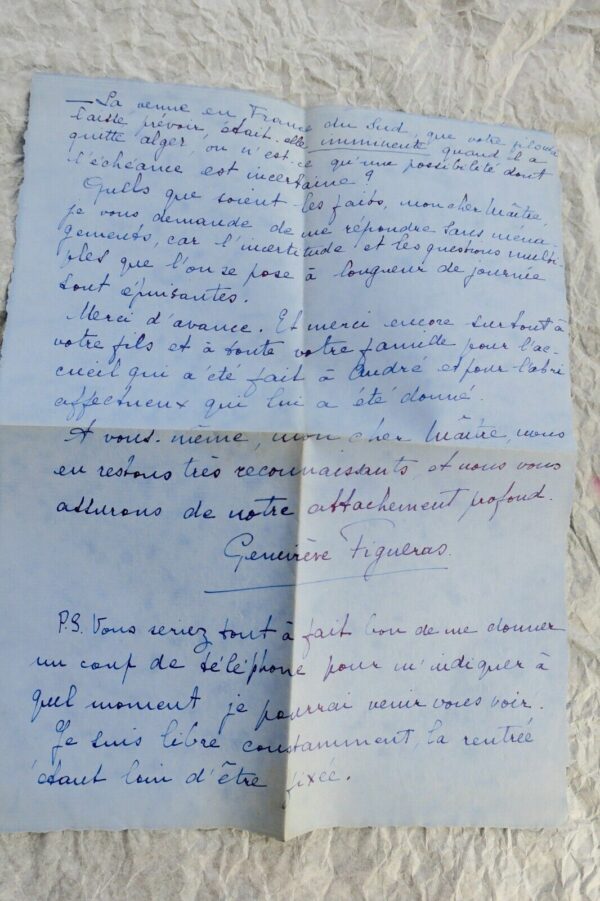 — La venue en France du Sud, que votre fils a
laissé prévoir, était-elle imminente quand il a
quitté Alger, ou n'est-ce qu'une possibilité dont
l'échéance est incertaine ?
Quels que soient les faits, mon cher Maître,
je vous demande de me répondre sans ména-
gements, car l'incertitude et les questions multi-
ples que l'on se pose à longueur de journée
sont épuisantes.
Merci d'avance. Et merci encore surtout à
votre fils et à toute votre famille pour l'ac-
cueil qui a été fait à André et pour l'abri
affectueux qui lui a été donné.
A vous-même, mon cher Maître, nous
en restons très reconnaissants, et nous vous
assurons de notre attachement profond.
Geneviève Figueras.
P.S. Vous seriez tout à fait bon de me donner
un coup de téléphone pour m'indiquer à
quel moment je pourrai venir vous voir.
Je suis libre constamment, la rentrée
étant loin d'être fixée.